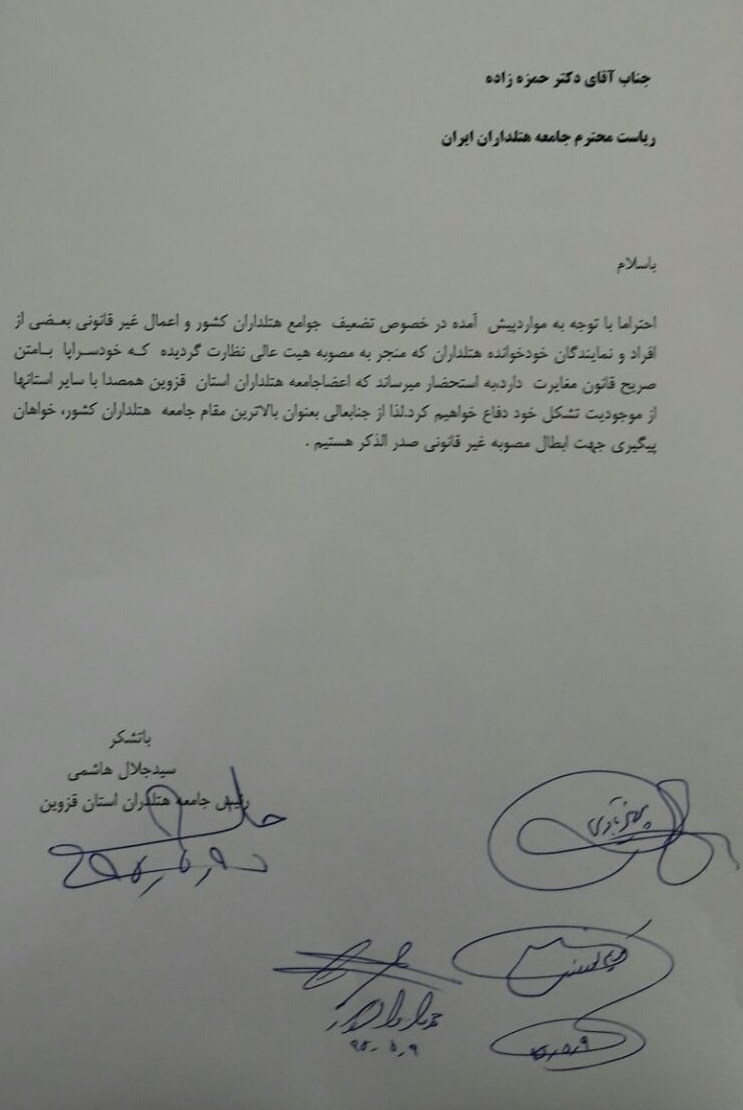 جناب آقای دکتر حمزه زاده
ریاست محترم جامعه هتلداران ایران
باسلام
احتراما با توجه به مواردپیش آمده در خصوص تضعیف جوامع هتلداران کشور و اعمال غیر قانونی بعضی از
افراد و نمایندگان خودخوانده هتلداران که منجر به مصوبه هیت عالی نظارت گردیده که خودسراپا بامتن
صریح قانون مغایرت دارد،به استحضار میرساند که اعضاجامعه هتلداران استان قزوین همصدا با سایر استانها
از موجودیت تشکل خود دفاع خواهیم کرد.لذا از جنابعالی بعنوان بالاترین مقام جامعه هتلداران کشور، خواهان
پیگیری جهت ابطال مصوبه غیر قانونی صدر الذکر هستیم .
باتشکر
سیدجلال هاشمی
رئیس جامعه هتلدران استان قزوین
۹۵،۵،۹